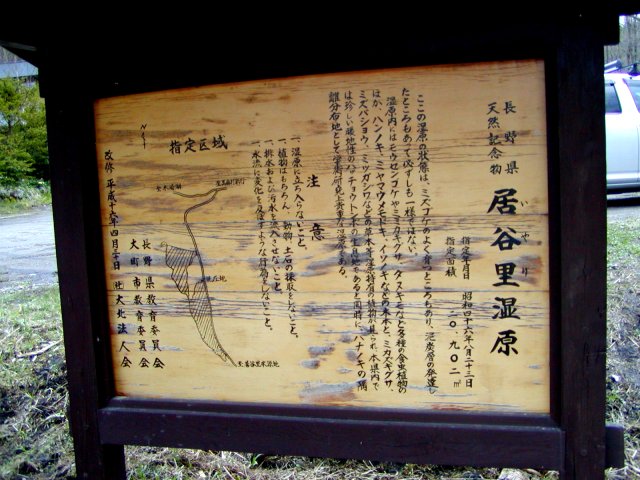 長野県
天然記念物
居谷里湿原
いやり
指定年月日 昭和四十六年八月二十三日
指定面積 二〇、九〇二㎡
ここの湿原の状態は、ミズゴケのよく育つところもあり、泥炭層の発達し
たところもあって必ずしも一様ではない。
湿原内にはモウセンゴケやミミカキグサ、タヌキモなど多種の食虫植物の
ほか、ハンノキ、ミヤマウメモドキ、イソノキなどの木本と、ミカズキグサ、
ミズバショウ、ミツガシワなどの草本等湿原特有の植物が見られ、本県内で
は珍しい暖地性のなチョウトンボの生息地であると同時に、ハナノキの隔
離分布地として学術研究上貴重な湿原である。
注意
一、湿原に立ち入らないこと。
一、植物はもちろん、動物、土石の採取をしないこと。
一、排水および汚水を流入させないこと。
一、水流に変化を及ぼすような行為をしないこと。
指定区域
至木崎湖
至居谷里水源地
長野県教育委員会
大町市教育委員会
社大北法人会
改修 平成十六年四月二十日